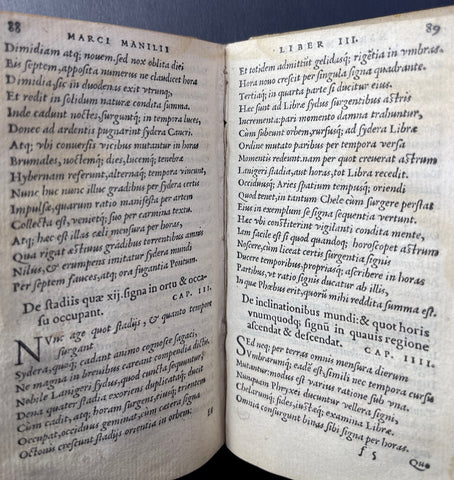 88
MARCI MANILII
Dimidiam atq; nouem, sed nox oblita diei
Bis septem, apposita numerus ne claudicet hora
Dimidia, sic in duodenas exit vtrunq;,
Et redit in solidum natura condita summa.
Inde cadunt noctes, surguntq; in tempora luces,
Donec ad ardentis pugnarint sydera Cancri.
Atq; vbi conuersis vicibus mutantur in horas
Brumales, noctemq; dies, lucemq; tenebræ
Hybernam referunt, alternaq; tempora vincunt,
Nunc huc nunc illuc gradibus per sydera certus
Impulsæ, quarum ratio manifesta per artem
Collecta est, venietq; suo per carmina textu.
Atq; hæc est illas cæli mensura per horas,
Qua rigat æstiuus gradibus torrentibus amnis
Nilus, & erumpens imitatur sydera mundi
Per septem fauces, atq; ora fugantia Pontum.
De stadiis quæ xij. signa in ortu & occa-
su occupant. CAP. III.
NVnc age quot stadijs, & quanto tempore
surgant
Sydera, quoq; cadant animo cognosce sagaci,
Ne magna in breuibus careant compendia dictis.
Nobile Lanigeri sydus, quod cuncta sequuntur,
Dena quater stadia exoriens duplicatq; ducit
Cùm cadit, atq; horam surgens, eiusq; trientem
Occupat, occiduus geminat, cùm cætera signa
Octonis crescunt stadijs orientia in orbem:
LIBER III.
89
Et totidem admittit gelidasq; rigētia in vmbras.
Hora nouo crescit per singula signa quadrante.
Tertiaq; in quarta parte si ducitur eius.
Hæc sunt ad Libræ sydus surgentibus astris
Incrementa: pari momento damna trahuntur,
Cùm subeunt orbem, rursusq; ad sydera Libræ
Ordine mutato paribus per tempora versa
Momentis redeunt. nam per quot creuerat astrum
Lanigeri stadia, aut horas, tot Libra recedit.
Occiduusq; Aries spatium tempusq; oriendi
Quod tenet, in tantum Chelæ cùm surgere perstat
Eius in exemplum se signa sequentia vertunt.
Hæc vbi constiterint vigilanti condita mente,
Iam facile est si quod quandoq; horoscopet astrum
Noscere, cùm liceat certis surgentia signis
Ducere temporibus, propriasq; ascribere in horas
Partibus, vt ratio signis ducatur ab illis,
In quæ Phœbus erit, quorū mihi reddita summa est.
De inclinationibus mundi: & quot horis
vnumquodq; signū in quauis regione
ascendat & descendat. CAP. IIII.
SEd neq; per terras omnis mensura dierum
Vmbrarumq; eadē est, simili nec tempora cursu
Mutantur: modus est varius ratione sub vna.
Nunquam Phryxei ducuntur vellera signi,
Chelarumq; fides, iustæq; examina Libræ.
Omnia consurgunt binas sibi signa per horas.
f 5
Quo